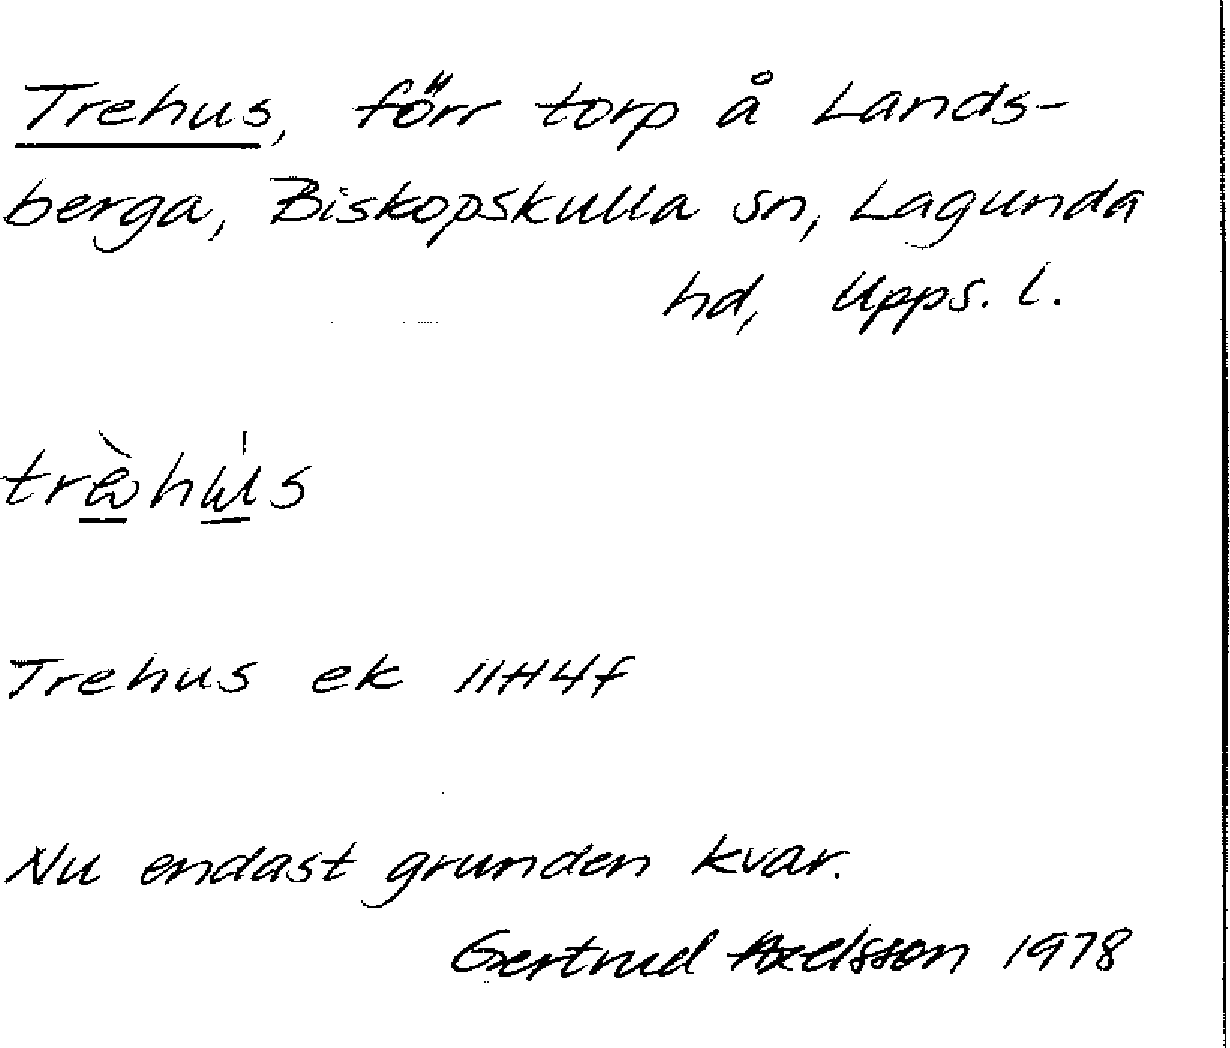 Trehus, förr torp å Lands-
berga, Biskopskulla sn, Lagunda
hd, Upps. l.
Trehus ek 11H4f
Nu endast grunden kvar.
Gertrud Axelsson 1978